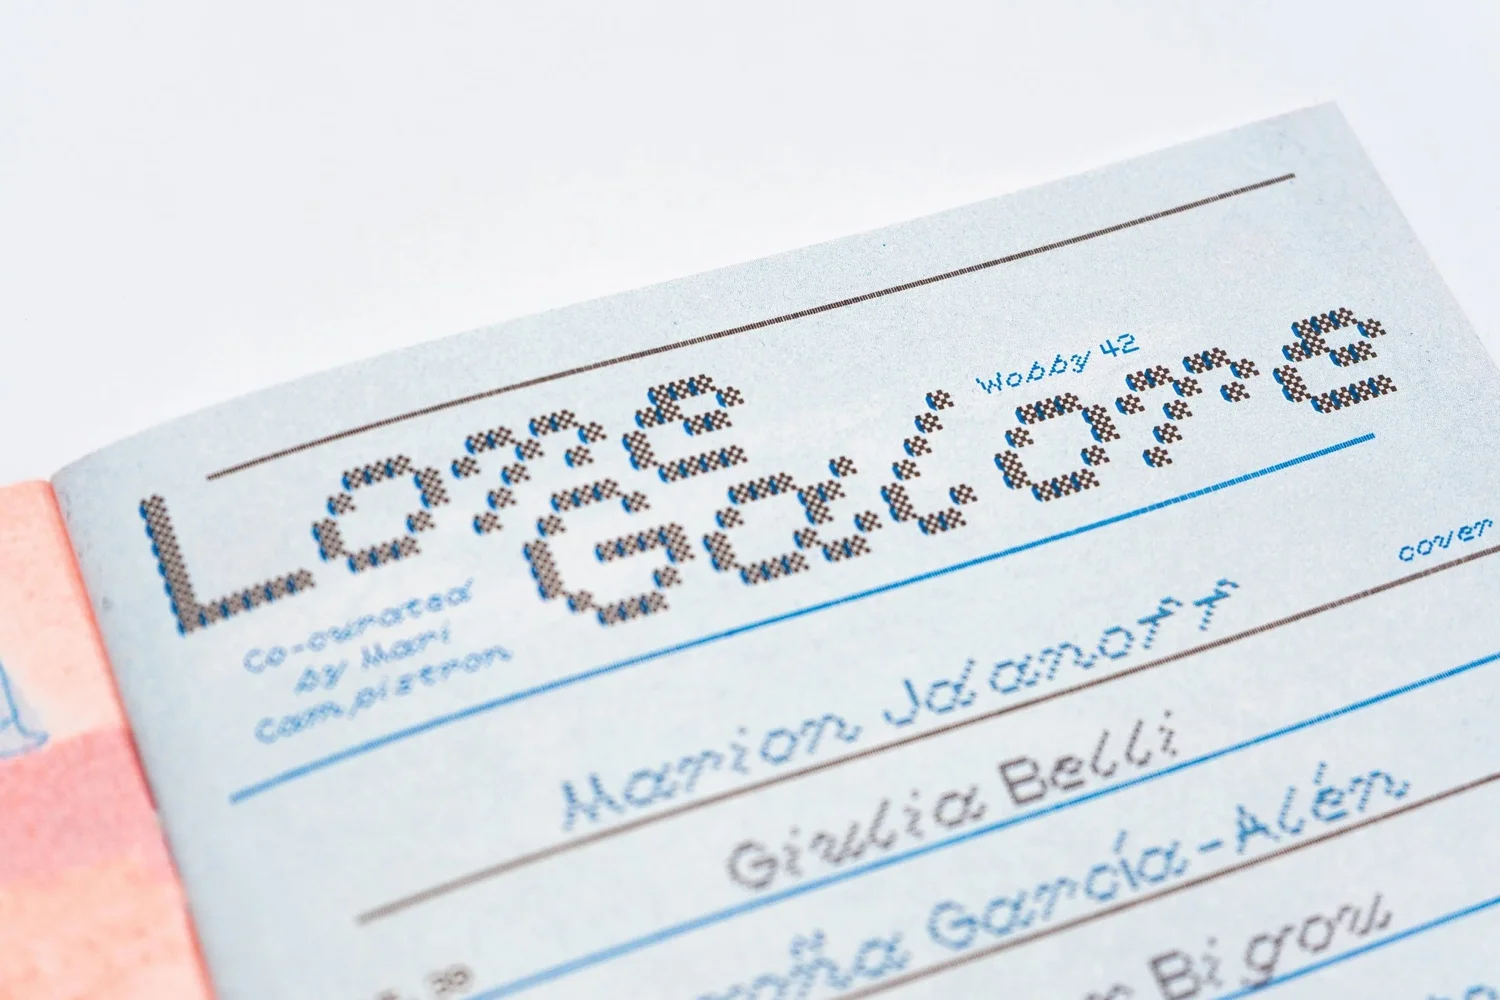 Wobby 42
Lore
Galore
Co-curated
by Mari
Campistron
cover
Marion Jdanoff
Giulia Belli
García-Alén
Bigou
39